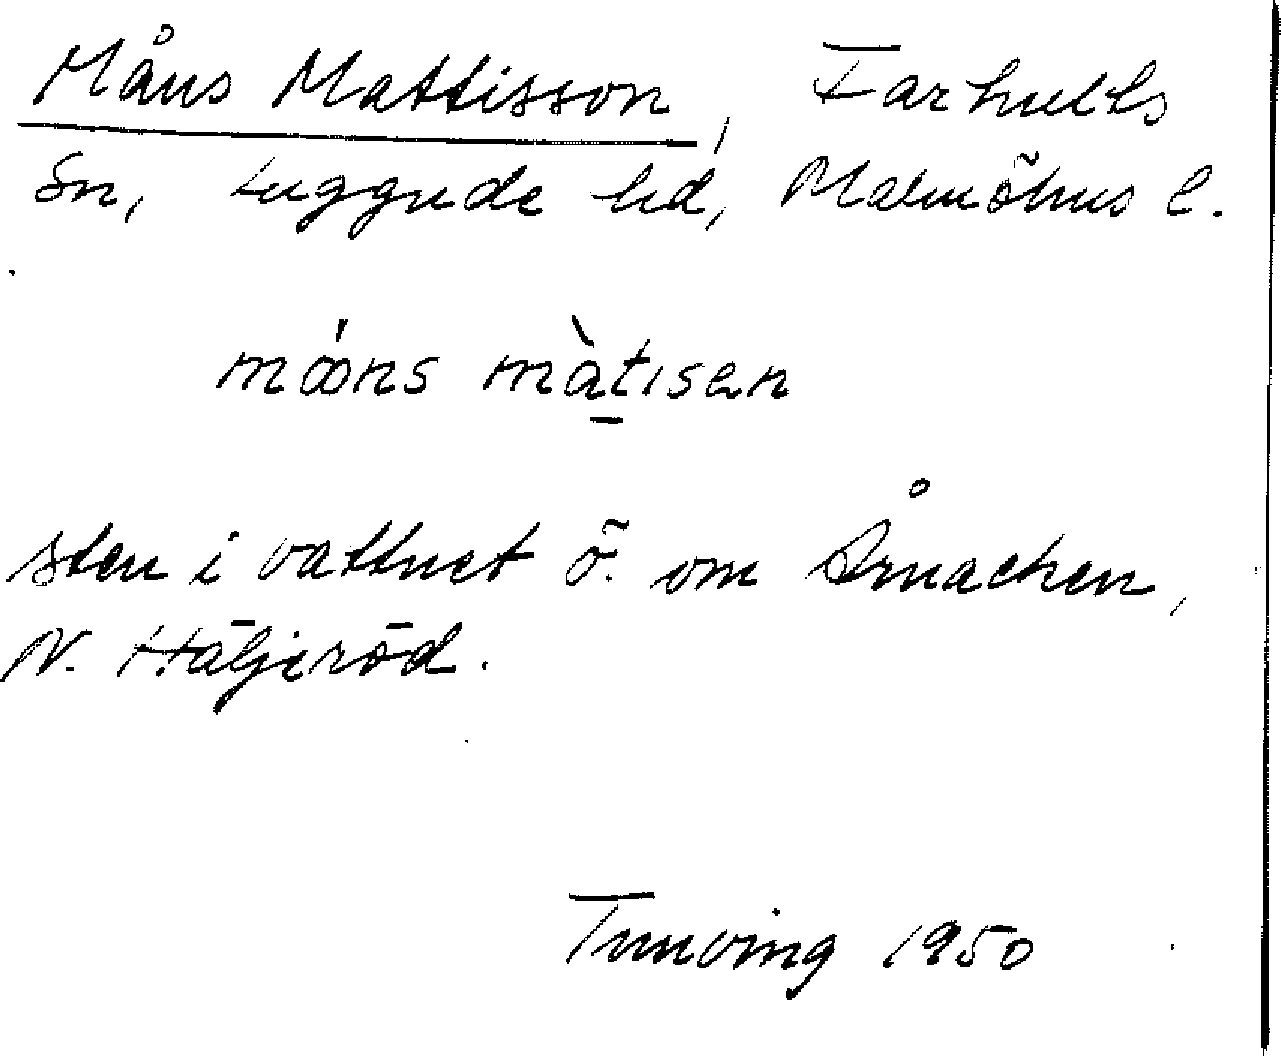 Måns Mattisson, Farhults
Sn, Luggude hd, Malmöhus l.
móǫns màtisen
sten i vattnet ö. om
N. Häljeröd.
Tunving 1950